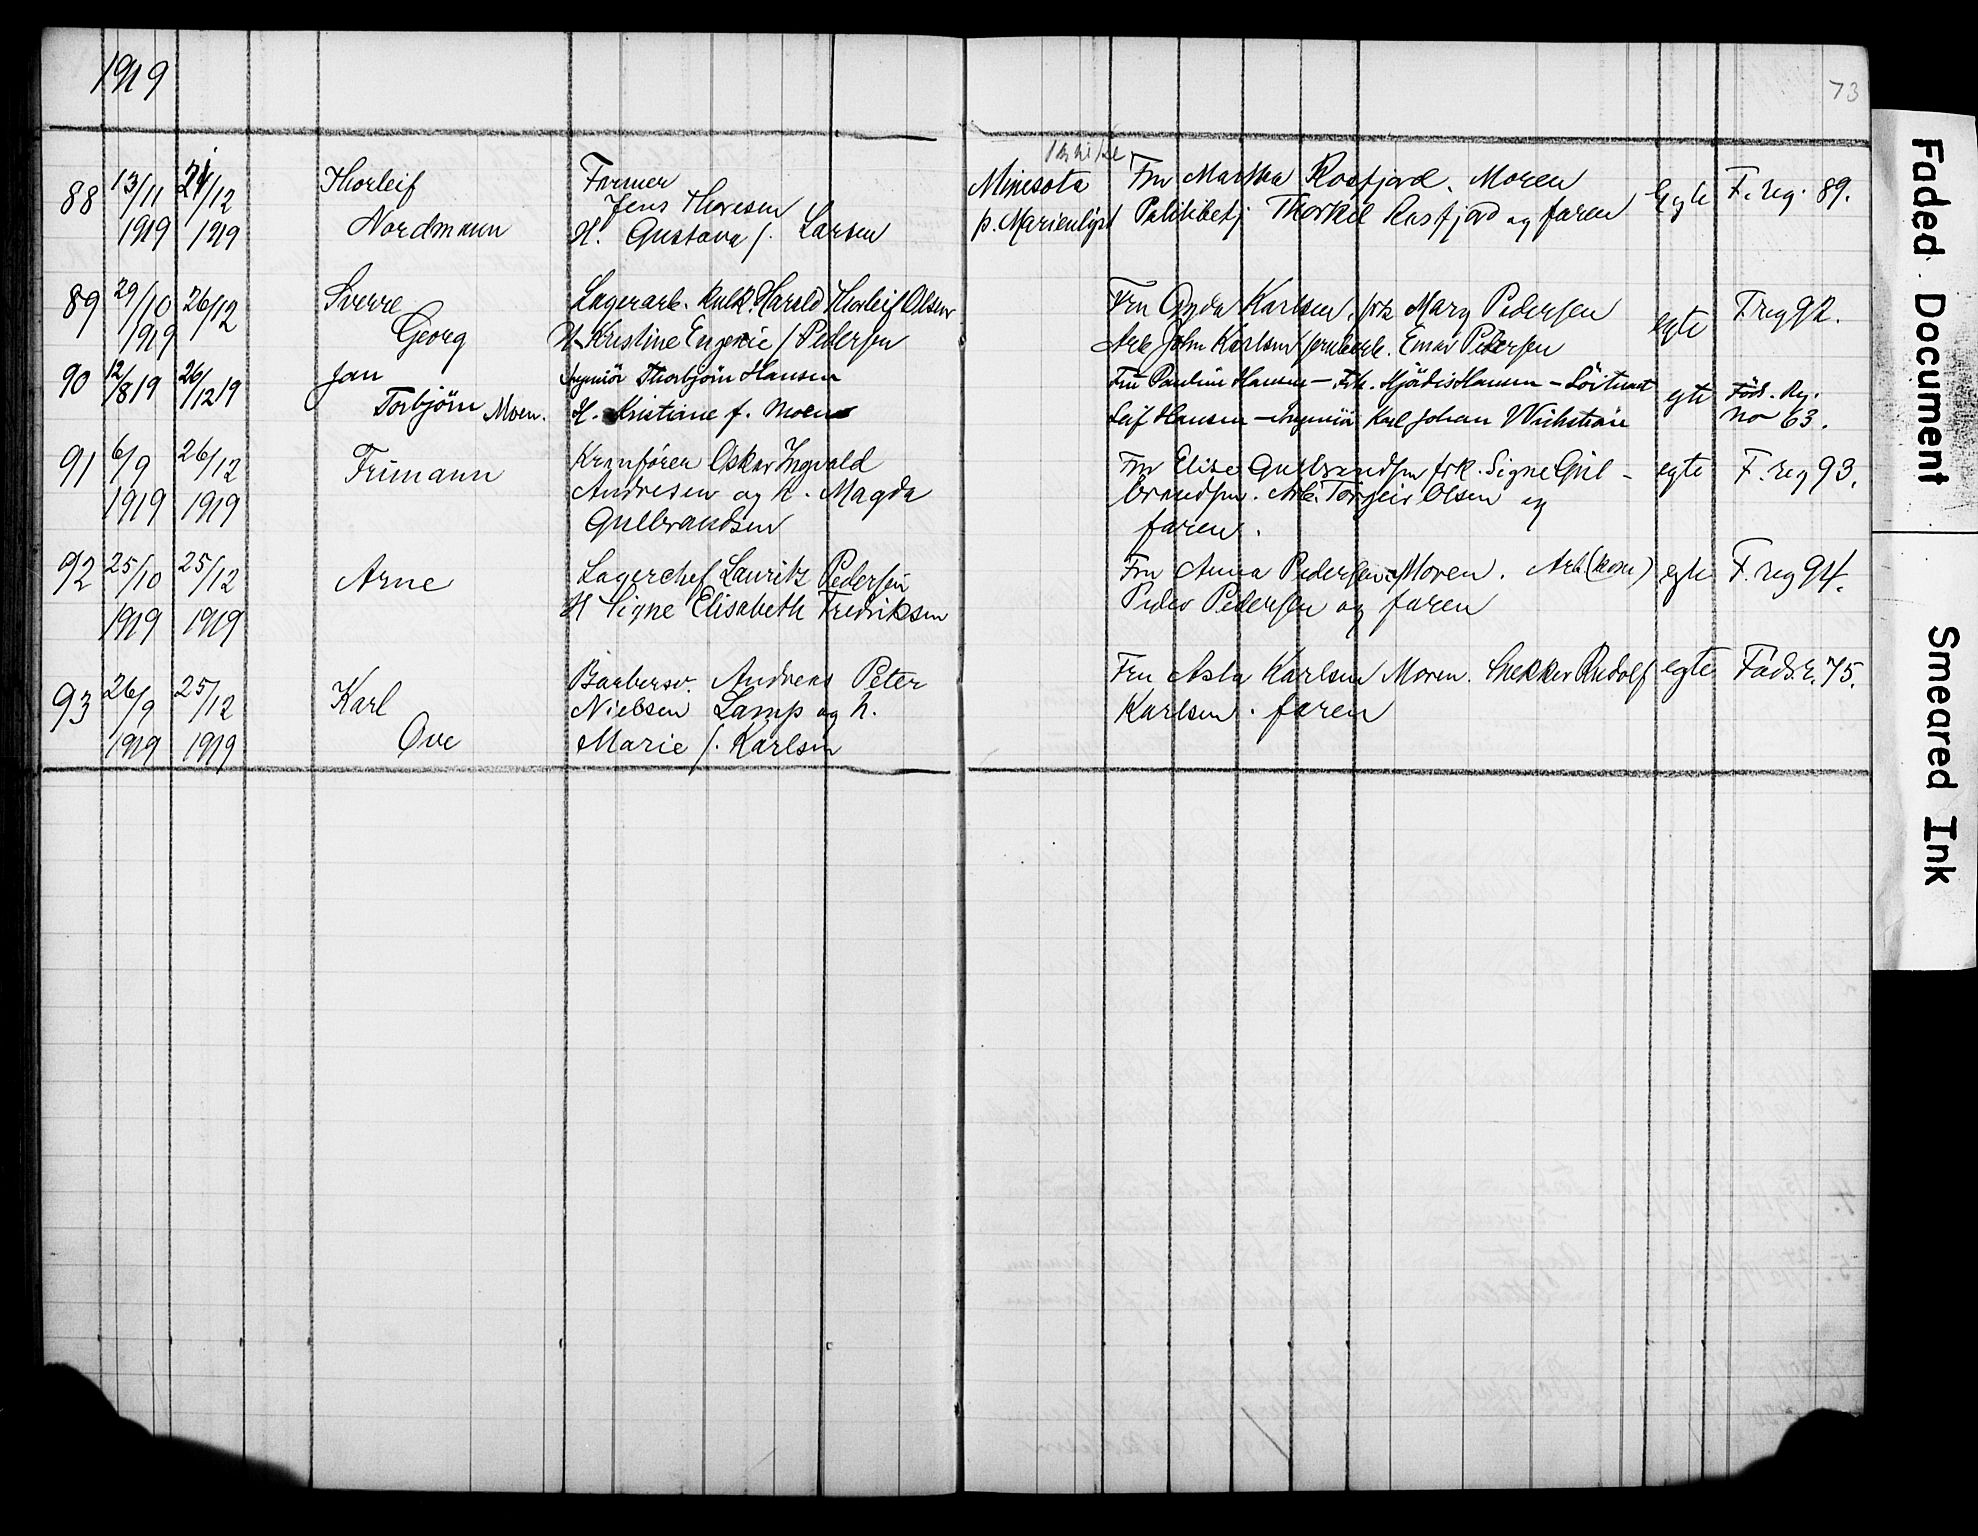 1919
73
88 13/11 1919 21/12 1919
Thorleif
Nordmann
Farmer
Jens Thoresen
H. Gustava f. Larsen
Minesota
p. Marienlyst
Fru Martha Rosfjord. Moren
Politibetj Thorkel Rosfjord og faren
Egte
F. reg. 89.
89 29/10 1919 26/12
Sverre
Georg
Lagerarb. Harald Thorleif Olsen
H. Kristine Eugenie f Pedersen
Fru Gyda Karlsen, frk Mary Pedersen
Arb John Karlsen jernbarb. Einar Pedersen
egte
F reg 92.
90 12/8 19 26/12 19
Jan
Torbjörn Moen.
Ingeniör Thorbjörn Hansen
H. Kristine f. Moen
Fru Pauline Hansen – Frk. Hjördis Hansen – Löitnant
Leif Hansen – Ingeniör Karl Johan
egte
Föds. Reg.
No 63.
91 6/9 1919 26/12 1919
Frimann
Kranförer Oskar Ingvald
Andresen og h. Magda
Gulbrandsen
Fru Elise Gulbrandsen frk. Signe Gul-
brandsen. Arb. Torgeir Olsen og
faren.
egte
F. reg 93.
92 25/10 1919 25/12 1919
Arne
Lagerchef Lauritz Pedersen
H Signe Elisabeth Fredriksen
Fru Anna Pedersen, Moren. Arb (kom)
Peder Pedersen og faren
egte
F. reg 94.
93 26/9 1919 25/12 1919
Karl
Ove
Barbersv. Andreas Peter
Nielsen Lamp og h.
Marie f. Karlsen
Fru Asta Karlsen Moren. Snekker Rudolf
Karlsen. faren
egte
Föds. r. 75.
Faded Document
Smeared Ink